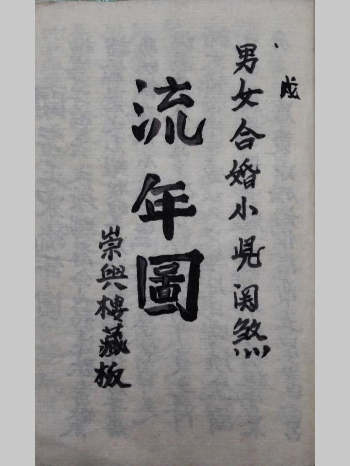 男女合婚小児関煞
流年圖
崇興樓藏板